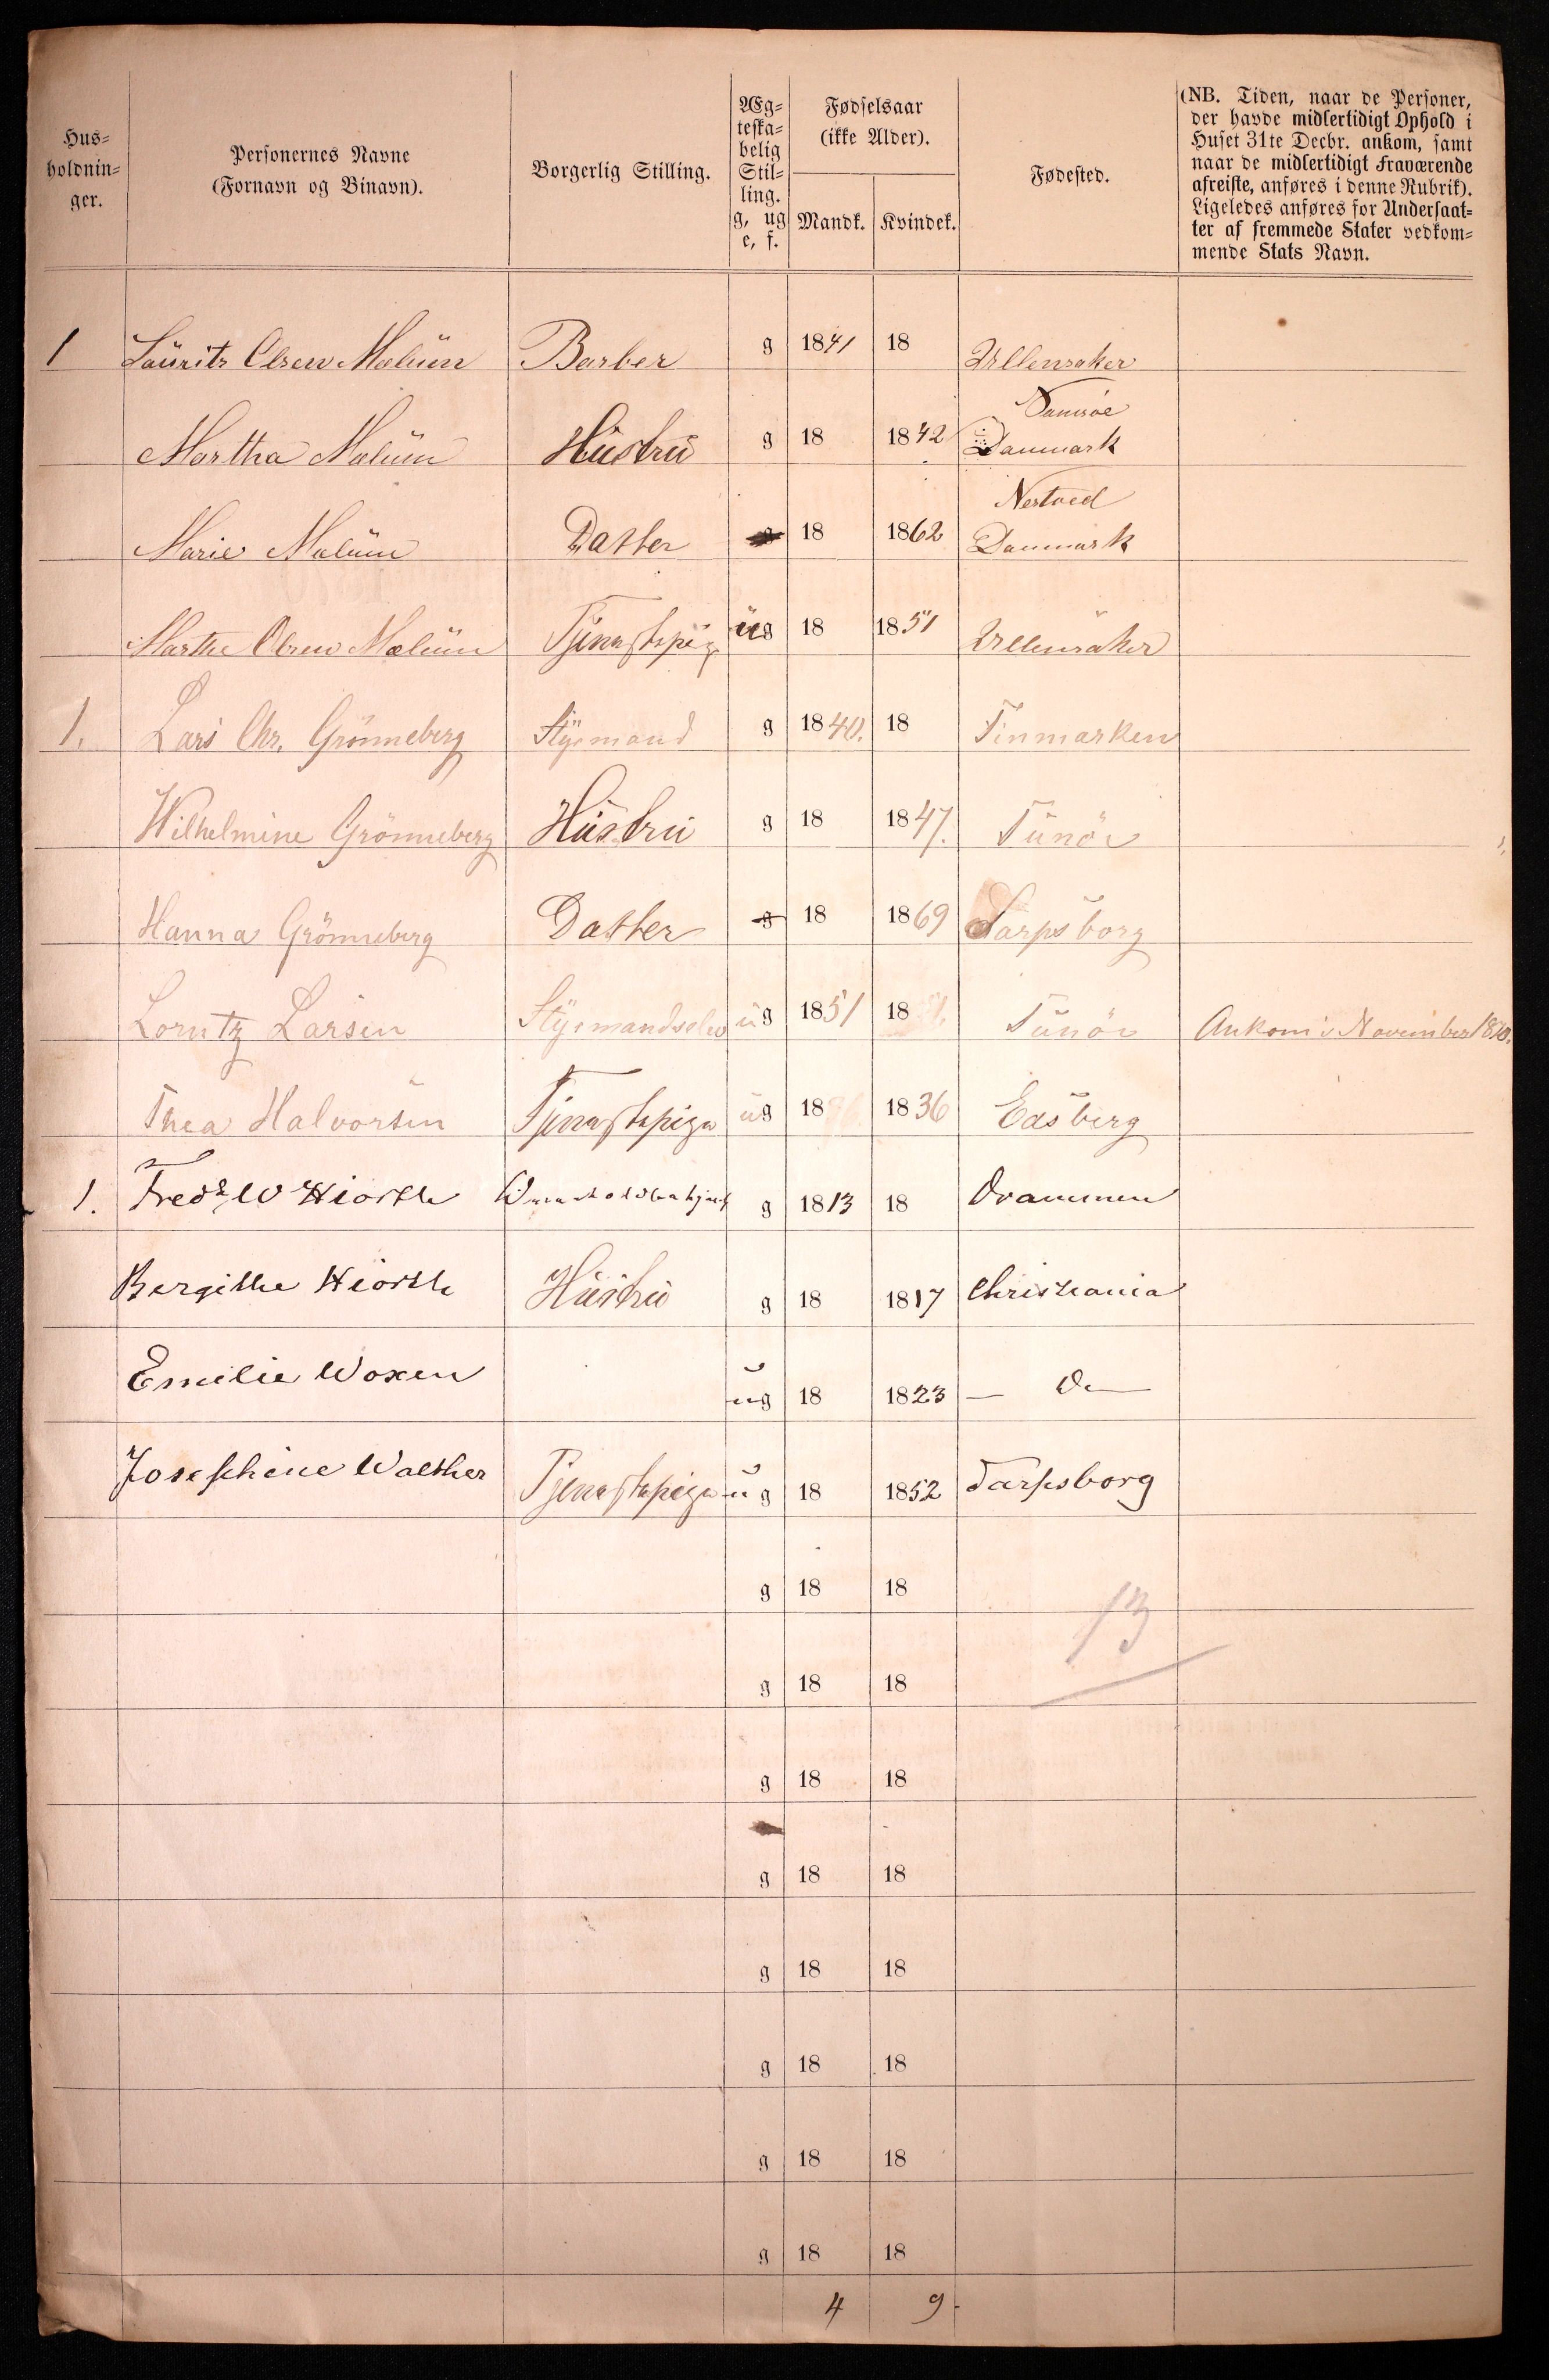 Hus-
holdnin-
ger.
Personernes Navne
(Fornavn og Binavn).
Borgerlig Stilling.
Æg-
teska-
belig
Stil-
ling.
g, ug
e, f.
Fødselsaar
(ikke Alder).
Mandk. Kvindek.
Fødested.
(NB. Tiden, naar de Personer,
der havde midlertidigt Ophold i
Huset 31te Decbr. ankom, samt
naar de midlertidigt Fraværende
afreiste, anføres i denne Rubrik).
Ligeledes anføres for Undersaat-
ter af fremmede Stater vedkom-
mende Stats Navn.
1 Lauritz Olsen Mælum Barber g 1841 18 Ullensaker
Martha Mælum Hüstrü g 18 1842 Danmark
Nestved
Marie Mælum Datter 18 1862 Danmark
Marthe Olsen Mælum Tjenestepige üg 18 1851 Ullensaker
1. Lars Chr. Grönneberg Styrmand g 1840. 18 Finmarken
Wilhelmine Grönneberg Hüstrü g 18 1847. Tünöe
Hanna Grönneberg Datter g 18 1869 Sarpsborg
Lorntz Larsen üg 1851 18 Tünöe Ankom i November 1870.
Thea Halvorsen Tjenestepige üg 18 1836 Edsberg
1. Fredk W Hiorth g 1813 18 Drammen
Bergitte Hiorth Hüstrü g 18 1817 Christiania
Emilie Woxen ug 18 1823 — Do —
Josephine Walther Tjenestepige ug 18 1852 Sarpsborg
g 18 18
13
g 18 18
g 18 18
g 18 18
g 18 18
g 18 18
g 18 18
g 18 18
4 9